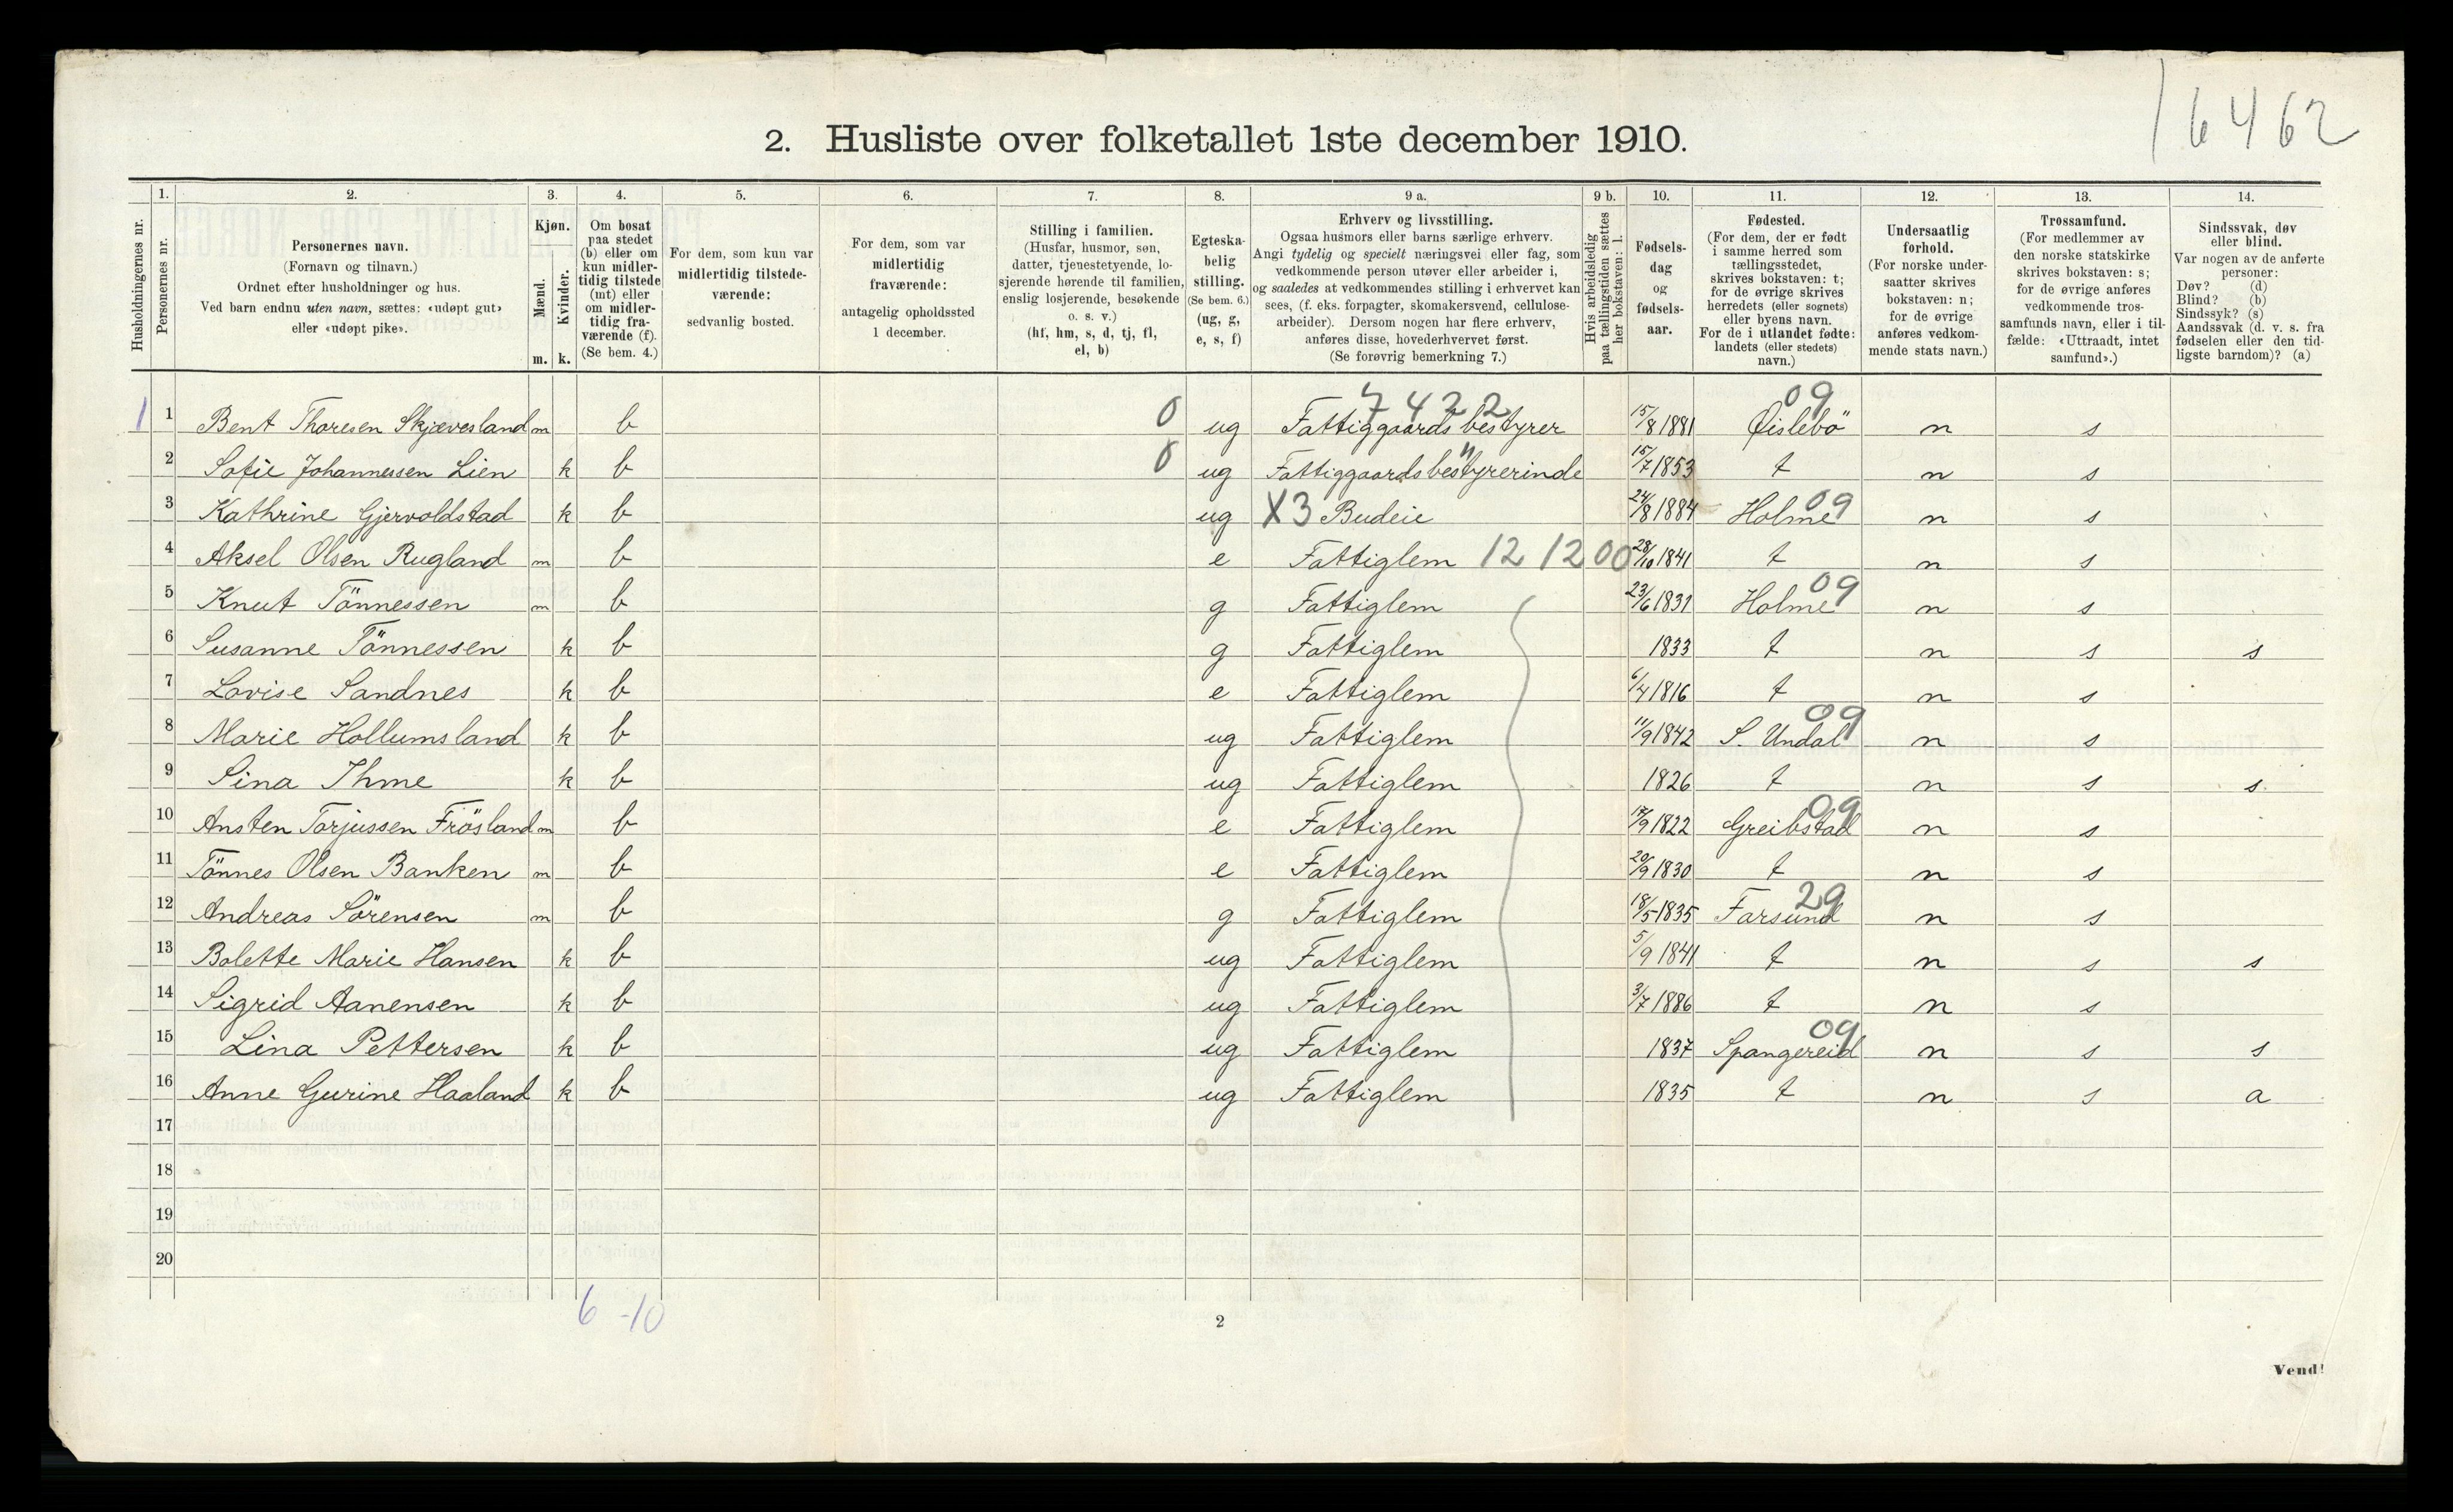 16462
2. Husliste over folketallet 1ste december 1910.
Husholdningernes nr.
1. Personernes nr.
2. Personernes navn.
(Fornavn og tilnavn.)
Ordnet efter husholdninger og hus.
Ved barn endnu uten navn, sættes: «udøpt gut»
eller «udøpt pike».
3. Kjøn.
Mænd. Kvinder.
m. k.
4. Om bosat
paa stedet
(b) eller om
kun midler-
tidig tilstede
(mt) eller
om midler-
tidig fra-
værende (f).
(Se bem. 4.)
5. For dem, som kun var
midlertidig tilstede-
værende:
sedvanlig bosted.
6. For dem, som var
midlertidig
fraværende:
antagelig opholdssted
1 december.
7. Stilling i familien.
(Husfar, husmor, søn,
datter, tjenestetyende, lo-
sjerende hørende til familien,
enslig losjerende, besøkende
o. s. v.)
(hf, hm, s, d, tj, fl,
el, b)
8. Egteska-
belig
stilling.
(Se bem. 6.)
(ug, g,
e, s, f)
9 a. Erhverv og livsstilling.
Ogsaa husmors eller barns særlige erhverv.
Angi tydelig og specielt næringsvei eller fag, som
vedkommende person utøver eller arbeider i,
og saaledes at vedkommendes stilling i erhvervet kan
sees, (f. eks. forpagter, skomakersvend, cellulose-
arbeider). Dersom nogen har flere erhverv,
anføres disse, hovederhvervet først.
(Se forøvrig bemerkning 7.)
9 b. Hvis arbeidsledig
paa tællingstiden sættes
her bokstaven: l.
10. Fødsels-
dag
og
fødsels-
aar.
11. Fødested.
(For dem, der er født
i samme herred som
tællingsstedet,
skrives bokstaven: t;
for de øvrige skrives
herredets (eller sognets)
eller byens navn.
For de i utlandet fødte:
landets (eller stedets)
navn.)
12. Undersaatlig
forhold.
(For norske under-
saatter skrives
bokstaven: n;
for de øvrige
anføres vedkom-
mende stats navn.)
13. Trossamfund.
(For medlemmer av
den norske statskirke
skrives bokstaven: s;
for de øvrige anføres
vedkommende tros-
samfunds navn, eller i til-
fælde: «Uttraadt, intet
samfund».)
14. Sindssvak, døv
eller blind.
Var nogen av de anførte
personer:
Døv? (d)
Blind? (b)
Sindssyk? (s)
Aandssvak (d. v. s. fra
fødselen eller den tid-
ligste barndom)? (a)
7422 09
1 1 Bent Thoresen Skjævesland m b 0 ug Fattiggaardsbestyrer 15/8 1881 Øislebö n s
2 Sofie Johannessen Lien k b 0 ug Fattiggaardsbestyrerinde " 15/7 1853 t n s
3 Kathrine Gjervoldstad k b ug X3 Budeie 24/8 1884 Holme 09 n s
4 Aksel Olsen Rugland m b e Fattiglem 12 12 00 28/10 1841 t n s
5 Knut Tönnessen m b g Fattiglem 23/6 1831 Holme 09 n s
6 Susanne Tönnessen k b g Fattiglem 1833 t n s s
7 Lovise Sandnes k b e Fattiglem 6/4 1816 t n s
8 Marie Hollumsland k b ug Fattiglem 11/9 1842 S. Undal 09 n s
9 Sina Ihme k b ug Fattiglem 1826 t n s s
10 Ansten Torjussen Frösland m b e Fattiglem 17/9 1822 Greibstad 09 n s
11 Tönnes Olsen Banken m b e Fattiglem 20/9 1830 t n s
12 Andreas Sörensen m b g Fattiglem 18/5 1835 Farsund 29 n s
13 Bolette Marie Hansen k b ug Fattiglem 5/9 1841 t n s s
14 Sigrid Aanensen k b ug Fattiglem 3/7 1886 t n s
15 Lina Pettersen k b ug Fattiglem 1837 Spangereid 09 n s s
16 Anne Gurine Haaland k b ug Fattiglem 1835 t n s a
17
18
19
20
6 -10
2
Vend!